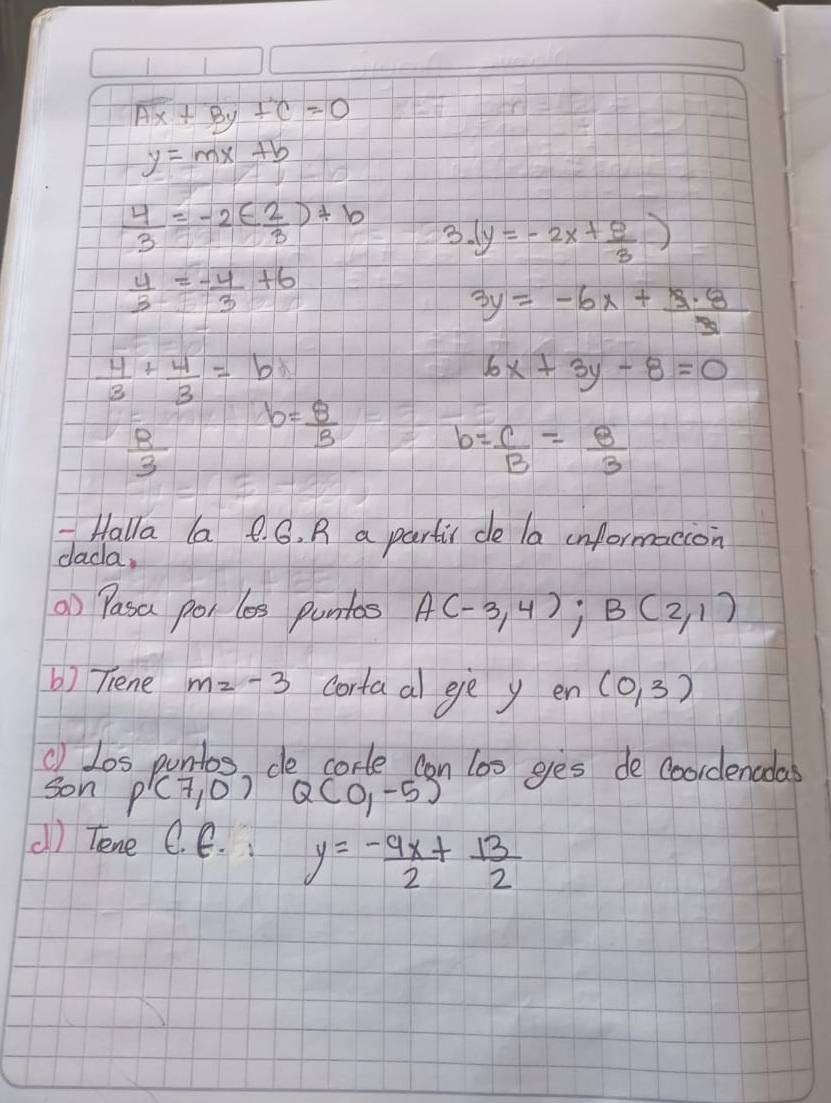 Ax + By + C = 0
y = mx + b
4/3 = -2(2/3) + b
4/3 = -4/3 + b
4/3 + 4/3 = b
8/3 b = 8/3
3.(y = -2x + 8/3)
3y = -6x + 3.8/3
6x + 3y - 8 = 0
b = C/B = 8/3
- Halla la E.G.R a partir de la información
dada.
a) Pasa por los puntos A(-3,4); B(2,1)
b) Tiene m = -3 corta al eje y en (0,3)
c) Los puntos de corte con los ejes de coordenadas
son P(7,0) Q(0,-5)
d) Tene E.E.: y = -9x/2 + 13/2